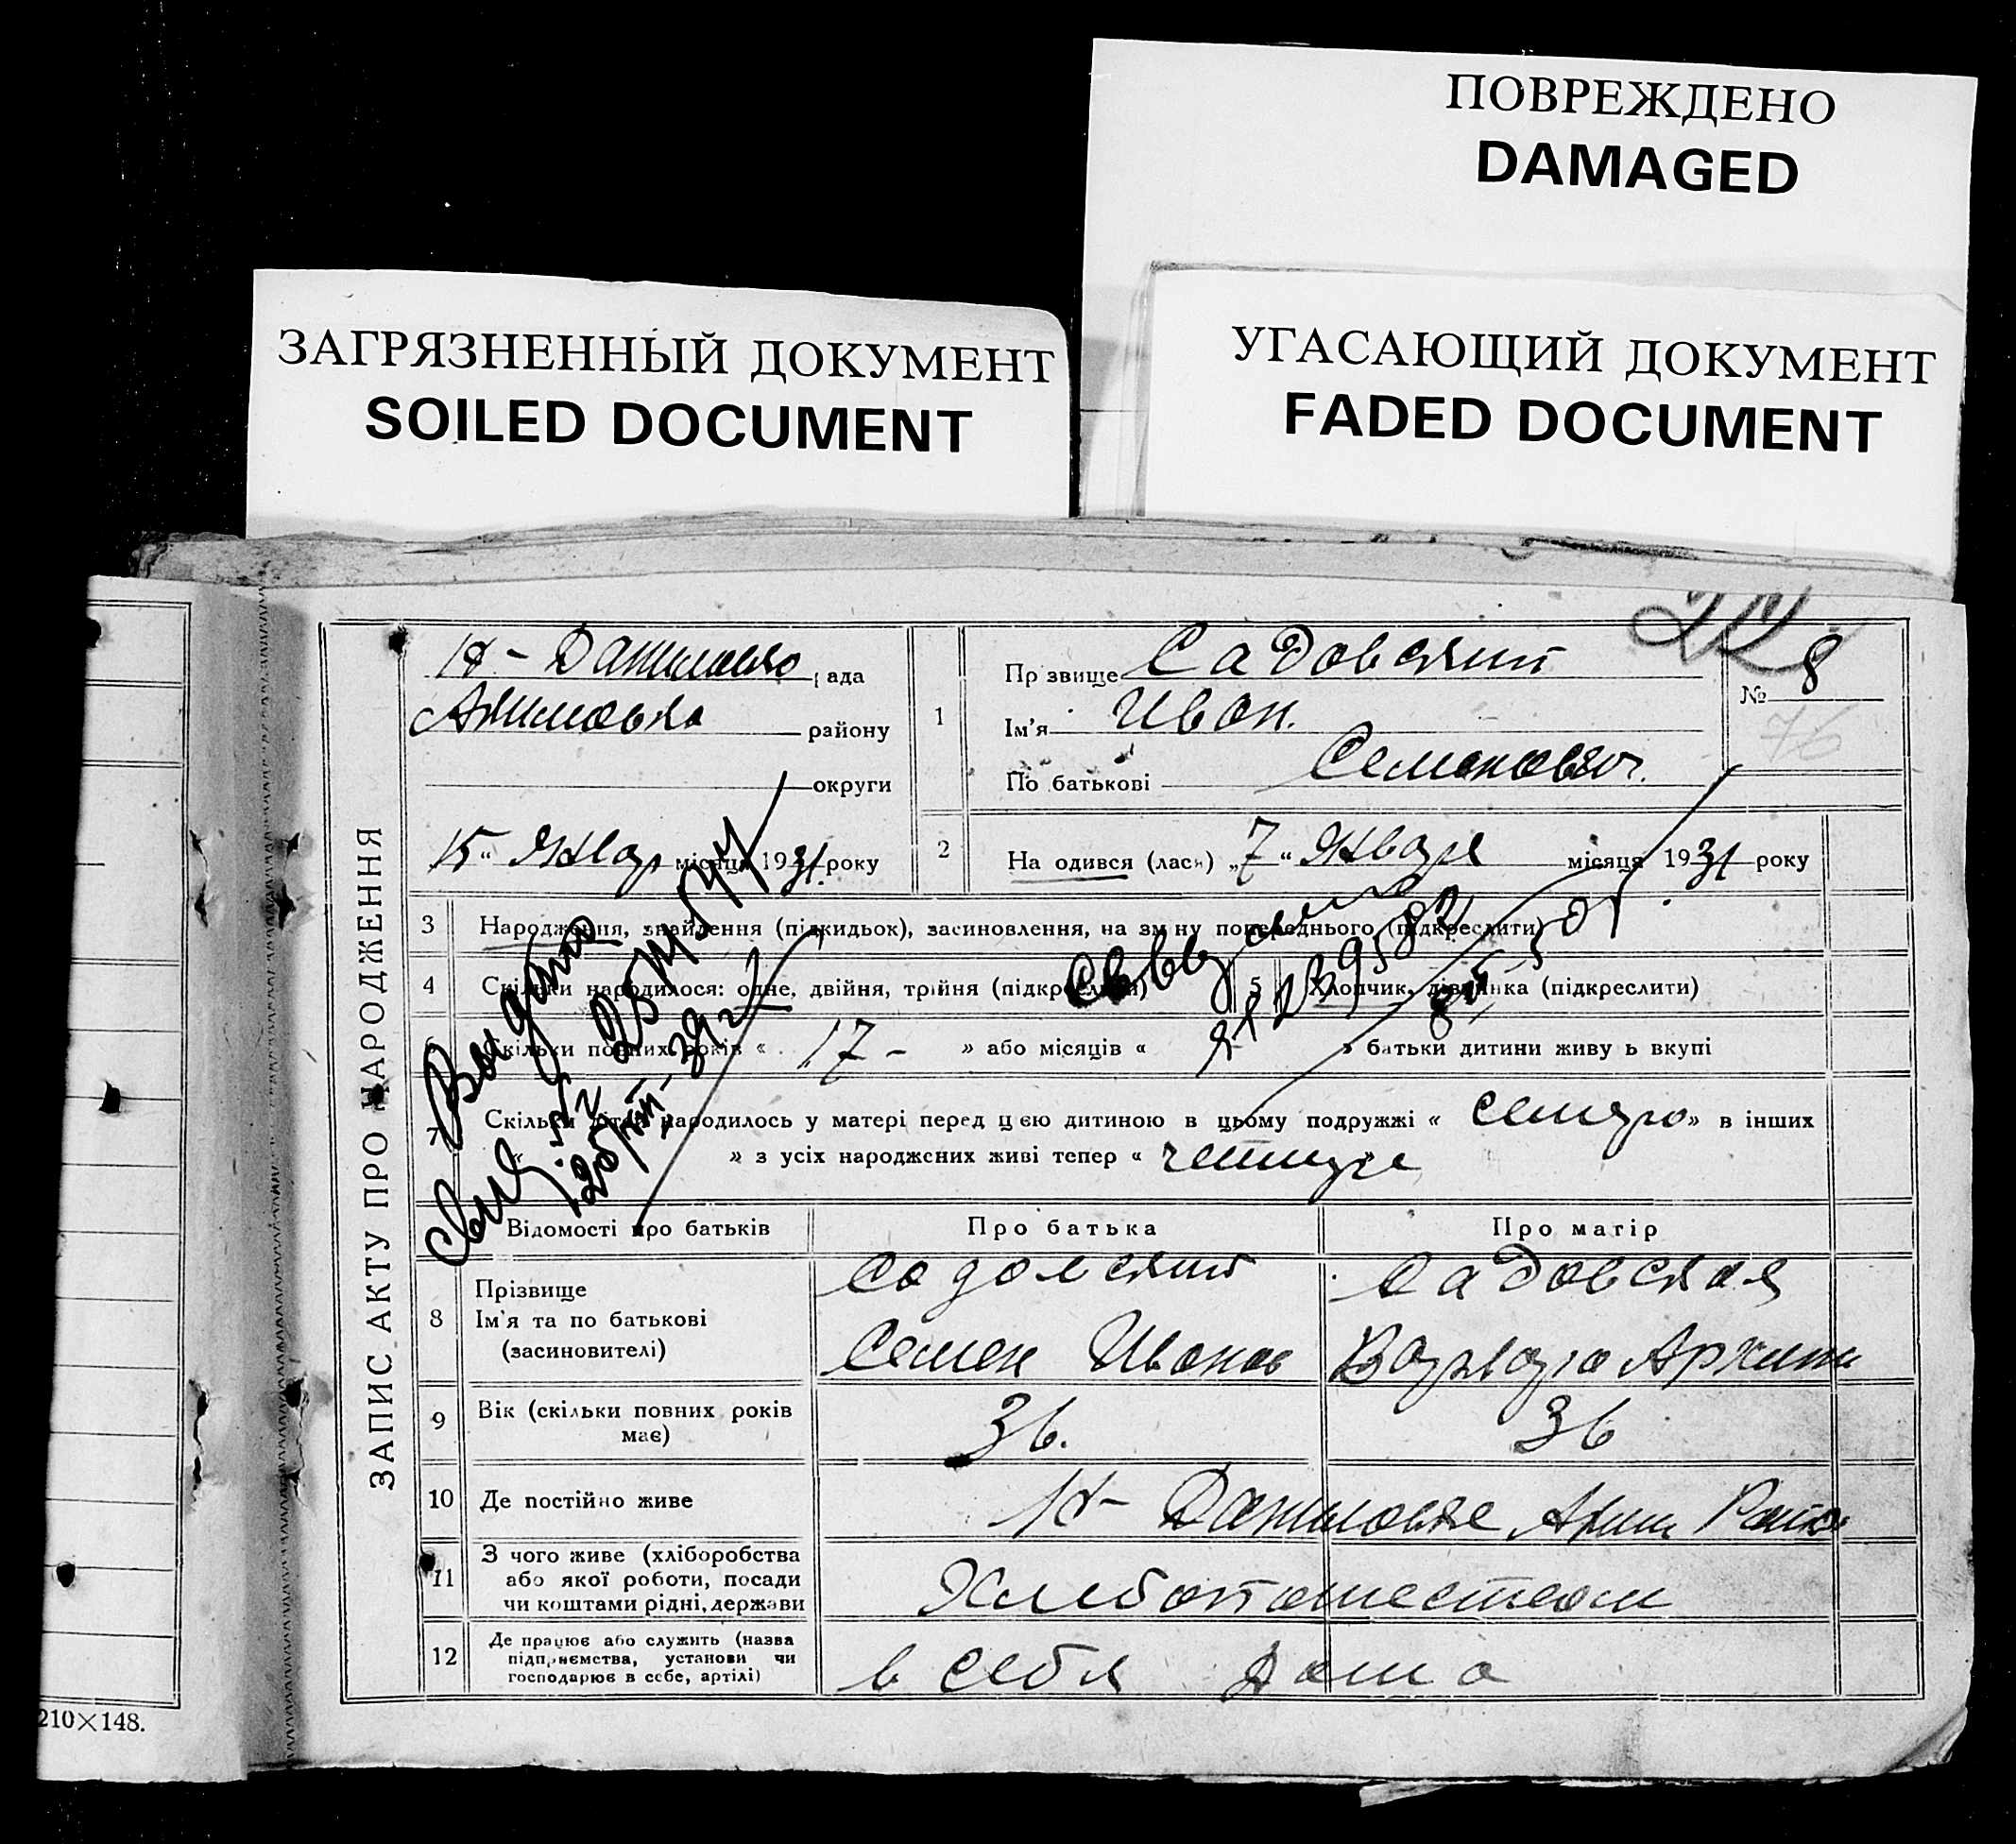 ПОВРЕЖДЕНО
DAMAGED
ЗАГРЯЗНЕННЫЙ ДОКУМЕНТ
SOILED DOCUMENT
УГАСАЮЩИЙ ДОКУМЕНТ
FADED DOCUMENT
ЗАПИС АКТУ ПРО НАРОДЖЕННЯ
Н-Даниловка рада
Акимовка району
округи
15 " Январ місяця 1931 року
1
Прізвище Садовский
Ім'я Иван.
По батькові Семенович.
№ 8
76
2
На одився (лась) „7" Января місяця 1931 року
3 Народження, знайдення (підкидьок), засиновлення, на зміну попереднього (підкреслити)
4 Скільки народилося: одне, двійня, трійня (підкреслити)
5 Хлопчик, дівчинка (підкреслити)
6 Скільки повних років « 17 - » або місяців « » батьки дитини живуть вкупі
7 Скільки дітей народилось у матері перед цією дитиною в цьому подружжі « семеро » в інших
« » з усіх народжених живі тепер « четверо
Відомості про батьків Про батька Про матір
8 Прізвище
Ім'я та по батькові
(засиновителі)
Садовский
Семен Иванов
Садовская
Варвара Архип
9 Вік (скільки повних років має) 36. 36
10 Де постійно живе Н-Даниловке Аким Района
11 З чого живе (хліборобства
або якої роботи, посади
чи коштами рідні, держави
Хлебопашеством
12 Де працює або служить (назва
підприємства, установи чи
господарює в себе, артілі)
в себя дома
210×148.